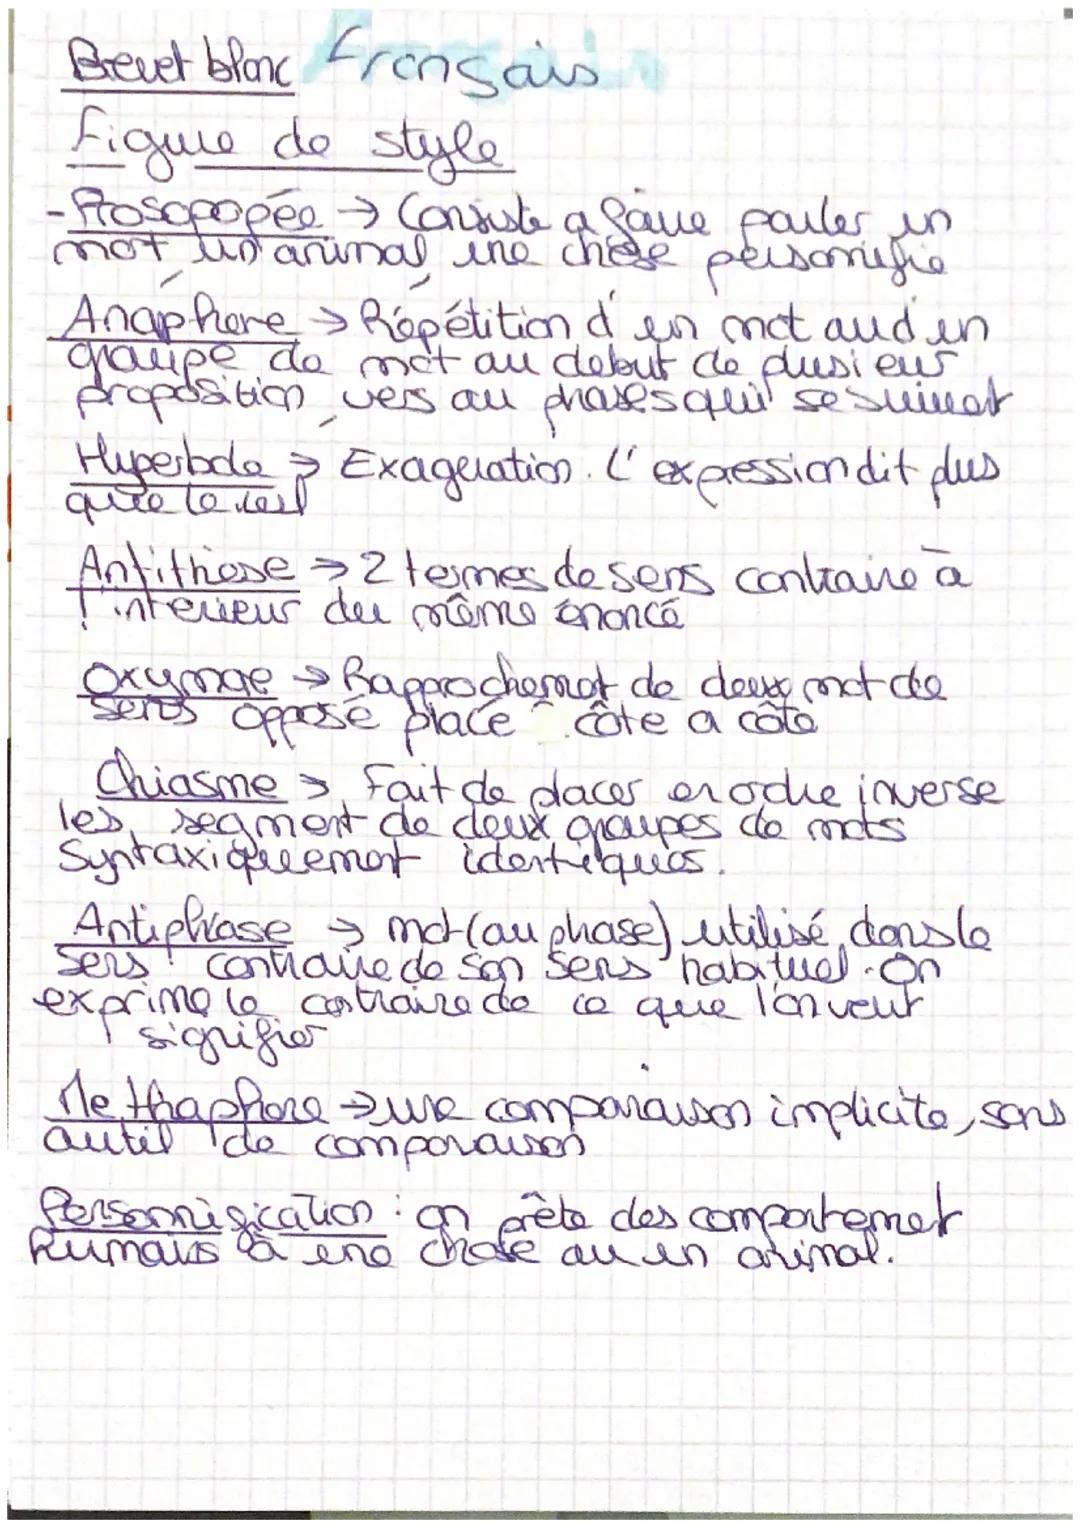 Brevet blanc Français
Figure de style
- Prosopopée → Consiste a faire parler un
mot, un animal, une chose personifie
Anaphore → Répétition d'un mot ou d'un
groupe de mot au debut de plusieur
proposition, vers ou phases qui se suivent
Hyperbole → Exageration. L'expression dit plus
que le reel
Antithèse → 2 termes de sens contraire à
l'interieur du même énoncé
Oxymore → Rapprochemet de deux mot de
sens opposé placé côte a côte
Chiasme → Fait de placer en odre inverse
les segment de deux groupes de mots
Syntaxiquement identiques.
Antiphrase → mot (ou phase) utilisé dans le
sens contraire de son sens habituel. On
exprime le contraire de ce que l'on veut
signifier
Methaphore → une comparaison implicite, sans
outil de comparaison
Personnification : on prête des comportemet
humains à une chose ou un animal.